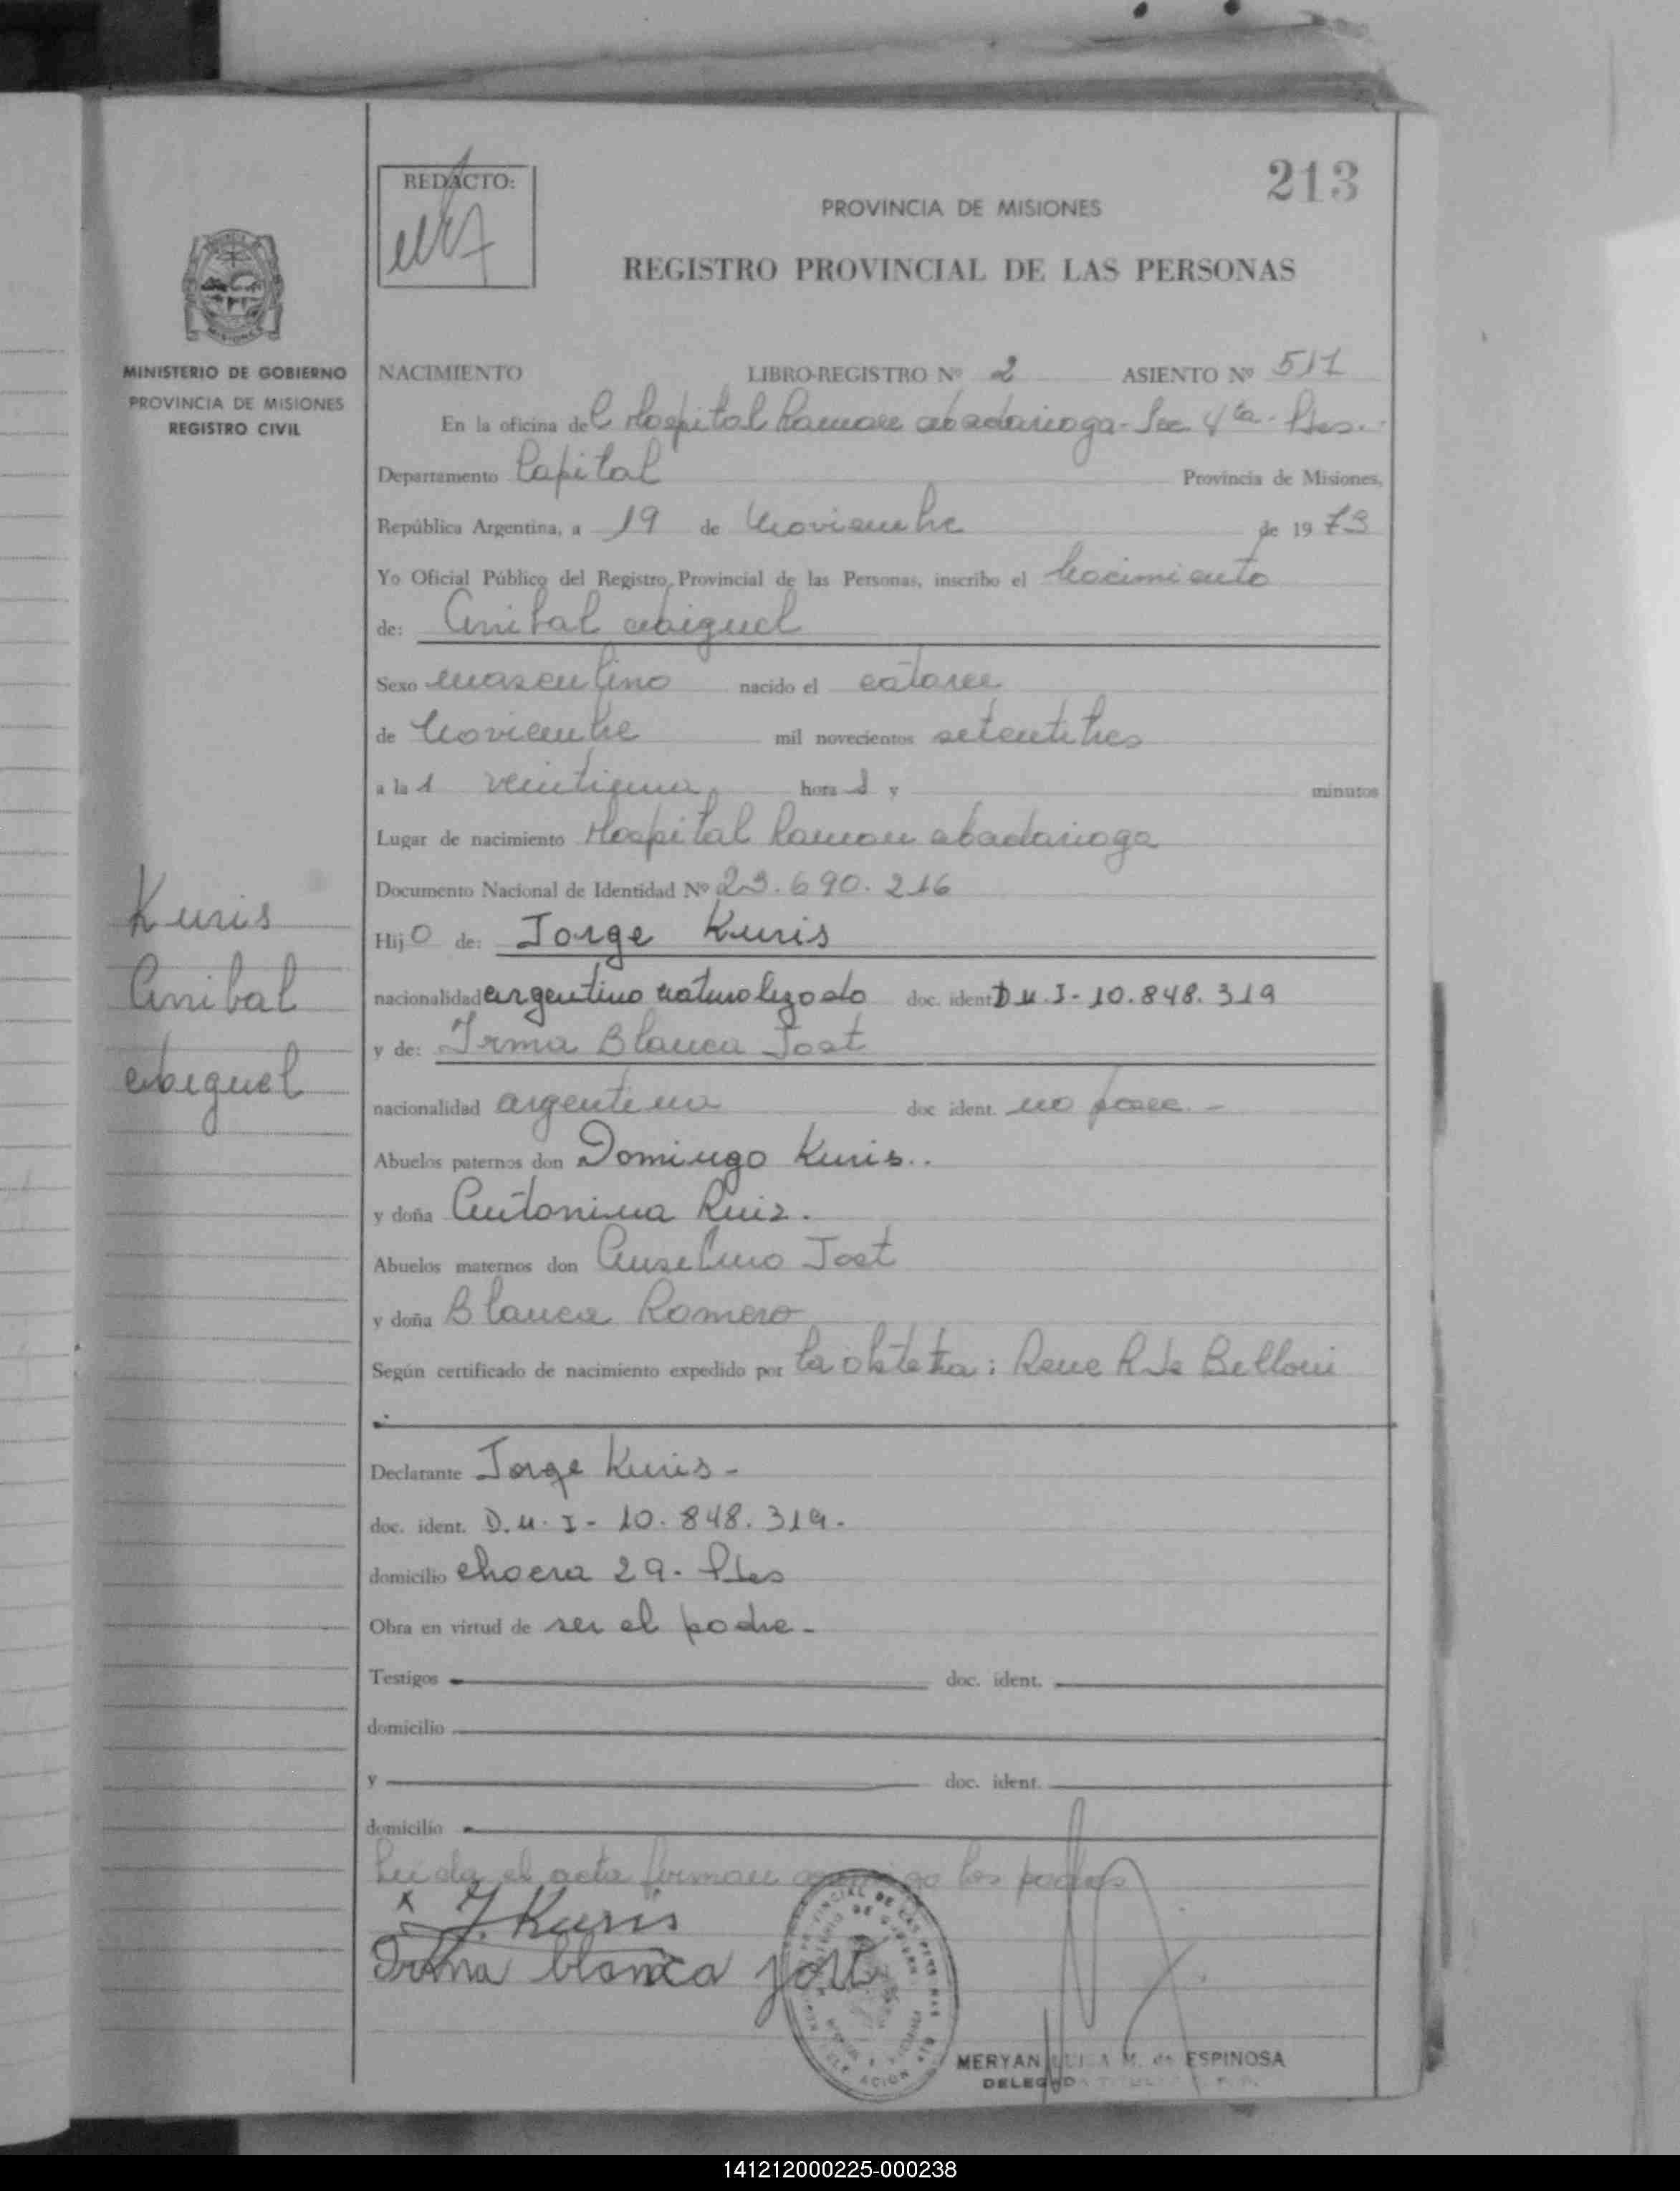 213
REDACTO:
PROVINCIA DE MISIONES
REGISTRO PROVINCIAL DE LAS PERSONAS
MINISTERIO DE GOBIERNO
PROVINCIA DE MISIONES
REGISTRO CIVIL
NACIMIENTO LIBRO-REGISTRO Nº 2 ASIENTO Nº 511
En la oficina del Hospital Ramon Madariaga - Sec 4ta - Pdas.
Departamento Capital Provincia de Misiones,
República Argentina, a 19 de Noviembre de 1973
Yo Oficial Público del Registro Provincial de las Personas, inscribo el Nacimiento
de: Anibal Miguel
Sexo masculino nacido el catorce
de Noviembre mil novecientos setentitres
a la s veintiuna hora s y minutos
Lugar de nacimiento Hospital Ramon Madariaga
Documento Nacional de Identidad Nº 23.690.216
Kuris
Anibal
Miguel
Hijo de: Jorge Kuris
nacionalidad argentino naturalizado doc. ident D.U.I- 10.848.319
y de: Irma Blanca Jost
nacionalidad argentina doc ident. no posee.-
Abuelos paternos don Domingo Kuris..
y doña Antonina Ruiz.
Abuelos maternos don Anselmo Jost
y doña Blanca Romero
Según certificado de nacimiento expedido por la obstetra: Rene R de Belloni
Declarante Jorge Kuris-
doc. ident. D.U.I- 10.848.319.
domicilio chacra 29. Pdas
Obra en virtud de ser el padre-
Testigos doc. ident.
domicilio
y doc. ident.
domicilio
Leida el acta firman conmigo los padres
x J. Kuris
Irma blanca jost
MERYAN LUISA M. de ESPINOSA
DELEGADA TITULAR
141212000225-000238